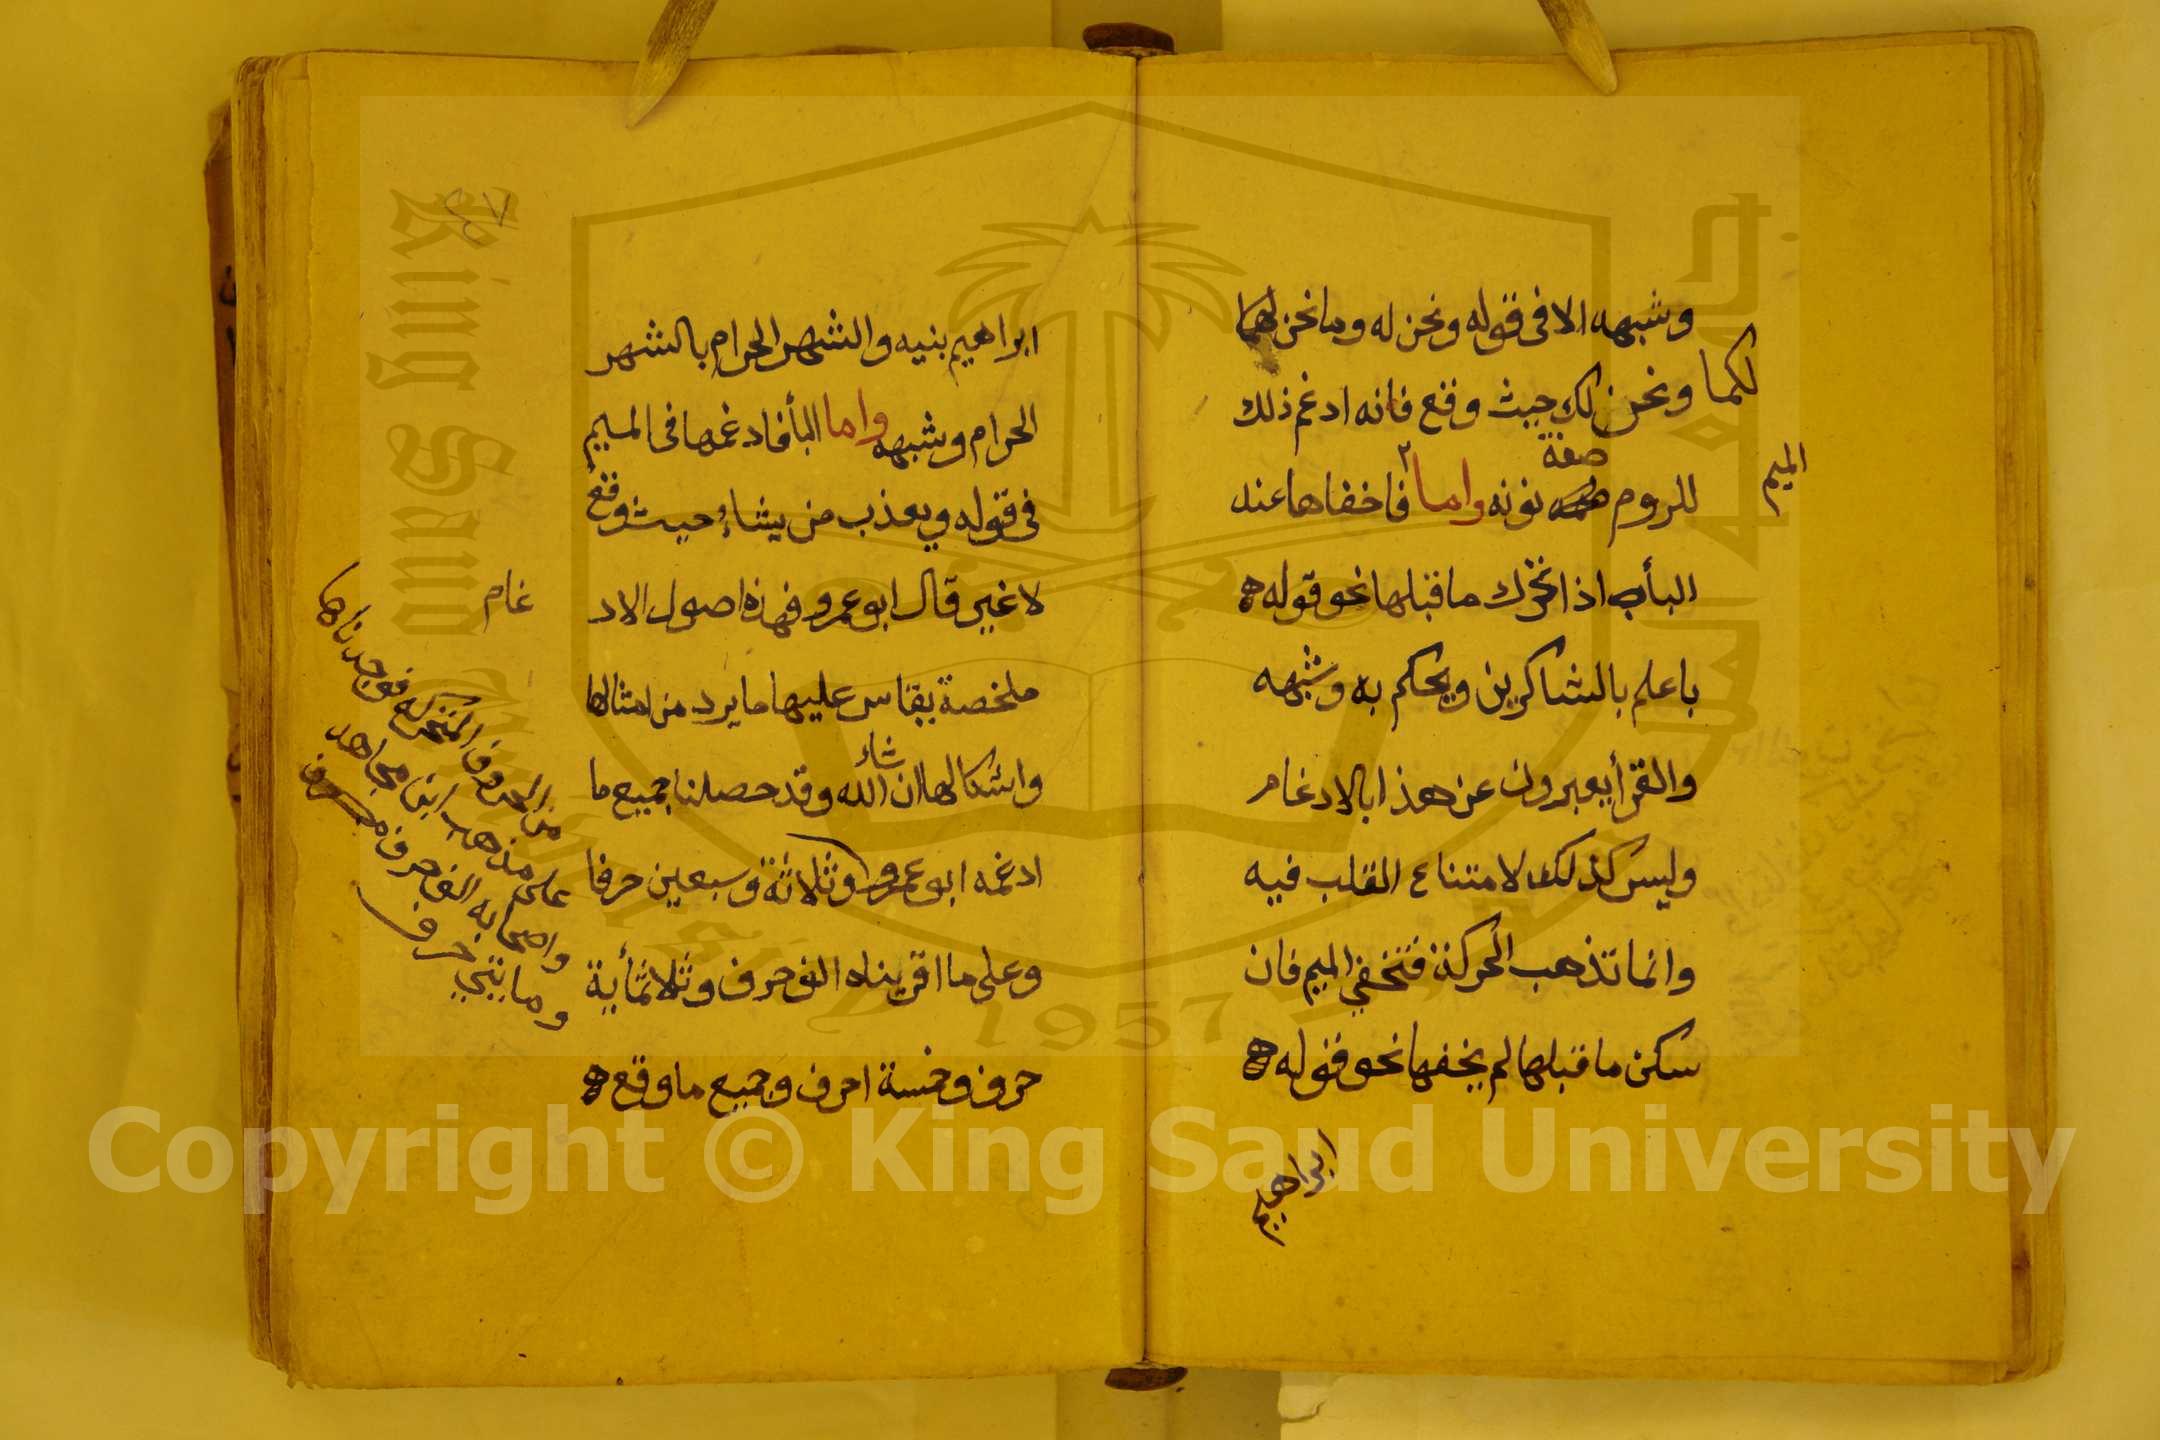 وشبهه الا فى قوله ونحن له وما نحن لهما
لكما
ونحن لك حيث وقع فانه ادغم ذلك
صفة
للروم نونه واما ٢ فاخفاها عند
الميم
البأب اذا تحرك ما قبلها نحو قوله ه
باعلم بالشاكرين ويحكم به وشبهه
والقرأ يعبرون عن هذا بالادغام
وليس كذلك لامتناع القلب فيه
وانما تذهب الحركة فتخفي الميم فان
سكن ما قبلها لم يخفها نحو قوله ه
ابراهيم
ابراهيم بنيه والشهر الحرام بالشهر
الحرام وشبهه واما البأ فادغمها فى الميم
فى قوله ويعذب من يشاء حيث وقع
لا غير قال ابو عمرو فهذه اصول الاد
غام
ملخصة يقاس عليها ما يرد من امثالها
شاء
واشكالها ان الله وقد حصلنا جميع ما
ادغمه ابو عمرو وثلاثة وسبعين حرفا
وعلى ما اقريناه الف حرف وثلاثمأية
حرف وخمسة احرف وجميع ما وقع ه
من الحروف المتحركة فوجدناها
على مذهب ابن مجاهد
واصحابه الف حرف
ومايتي حرف
King Saud University
1957
Copyright © King Saud University